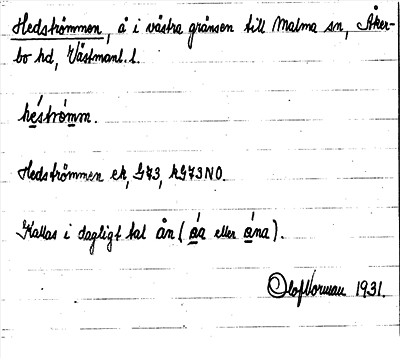 Hedströmmen, å i västra gränsen till Malma sn, Åker-
bo hd, Västmanl. l.
héströmm.
Hedströmmen ek, G73, kG73NO.
Kallas i dagligt tal ån (åa eller åna).
Olof Norman 1931.